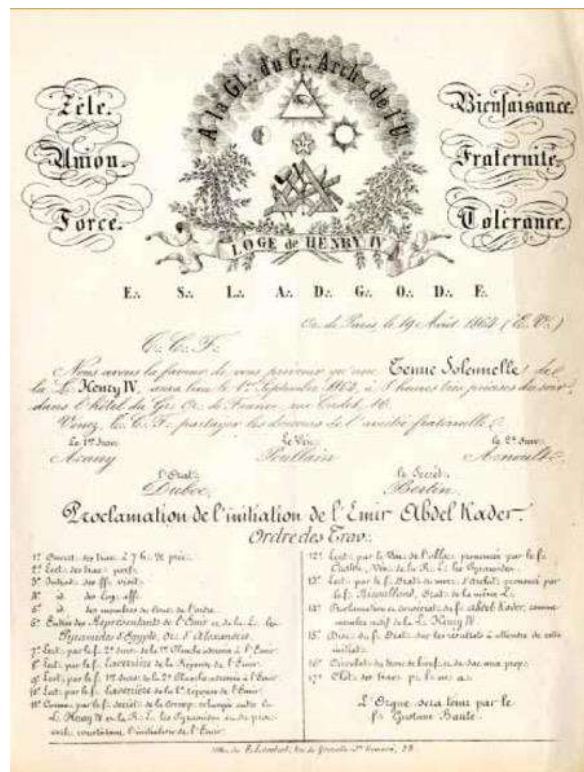 A la Gl∴ du G∴ Arch∴ de l'U∴
Zèle.
Union.
Force.
Bienfaisance.
Fraternité.
Tolérance.
LOGE de HENRY IV
E∴ S∴ L∴ A∴ D∴ G∴ O∴ D∴ F∴
Or∴ de Paris, le 19 Août 1864 (E∴ V∴)
T∴ C∴ F∴
Nous avons la faveur de vous prévenir qu'une Tenue Solennelle de
la L∴ Henry IV, aura lieu le 1er Septembre 1864, à heures très précises du soir,
dans l'hôtel du Gr∴ Or∴ de France, rue Cadet, 16.
Venez, T∴ C∴ F∴ partager les douceurs de l'amitié fraternelle.
Le 1er Surv∴
Le Vén∴
le 2e Surv∴
Poullain
Arnoult
l'Orat∴
le Secrét∴
Duboc
Bertin
Proclamation de l'initiation de l'Emir Abdel Kader.
Ordre des Trav∴
1° Ouvert∴ des trav∴ à 7 h∴ préc∴
2° Lect∴ des trac∴ parf∴
3° Introd∴ des ff∴ visit∴
4° id. des Log∴ aff∴
5° id. des membres du Cons∴ de l'ordre
6° Entrée des Représentants de l'Emir et de la L∴ les
Pyramides d'Egypte, Or∴ d'Alexandrie.
7° Lect∴ par le f∴ 2e Surv∴ de la 1re Planche adressée à l'Emir.
8° Lect∴ par le f∴ Laverrière de la Réponse de l'Emir.
9° Lect∴ par le f∴ 1er Surv∴ de la 2e Planche adressée à l'Emir.
10° Lect∴ par le f∴ Laverrière de la 2e Réponse de l'Emir.
11° par le f∴ Secrét∴ de la Corresp∴ échangée entre la
L∴ Henry IV et la R∴ L∴ les Pyramides et du procès
verb∴ constatant l'initiation de l'Emir.
12° Lect∴ par le Vén∴ de l'alloc∴ prononcée par le f∴
Vén∴ de la R∴ L∴ les Pyramides.
13° Lect∴ par le f∴ Orat∴ du morc∴ d'Archit∴ prononcé par
le f∴ Orat∴ de la même L∴
14° Proclamation et consécrat∴ du f∴ Abdel Kader, comme
membre actif de la L∴ Henry IV.
15° Disc∴ du f∴ Orat∴ sur les résultats à attendre de cette
initiat∴
16° Circulat∴ du tronc de bienf∴ et du sac aux prop∴
17° Clôt∴ des trav∴
L'Orgue sera tenu par le
f∴ Gustave Baute.